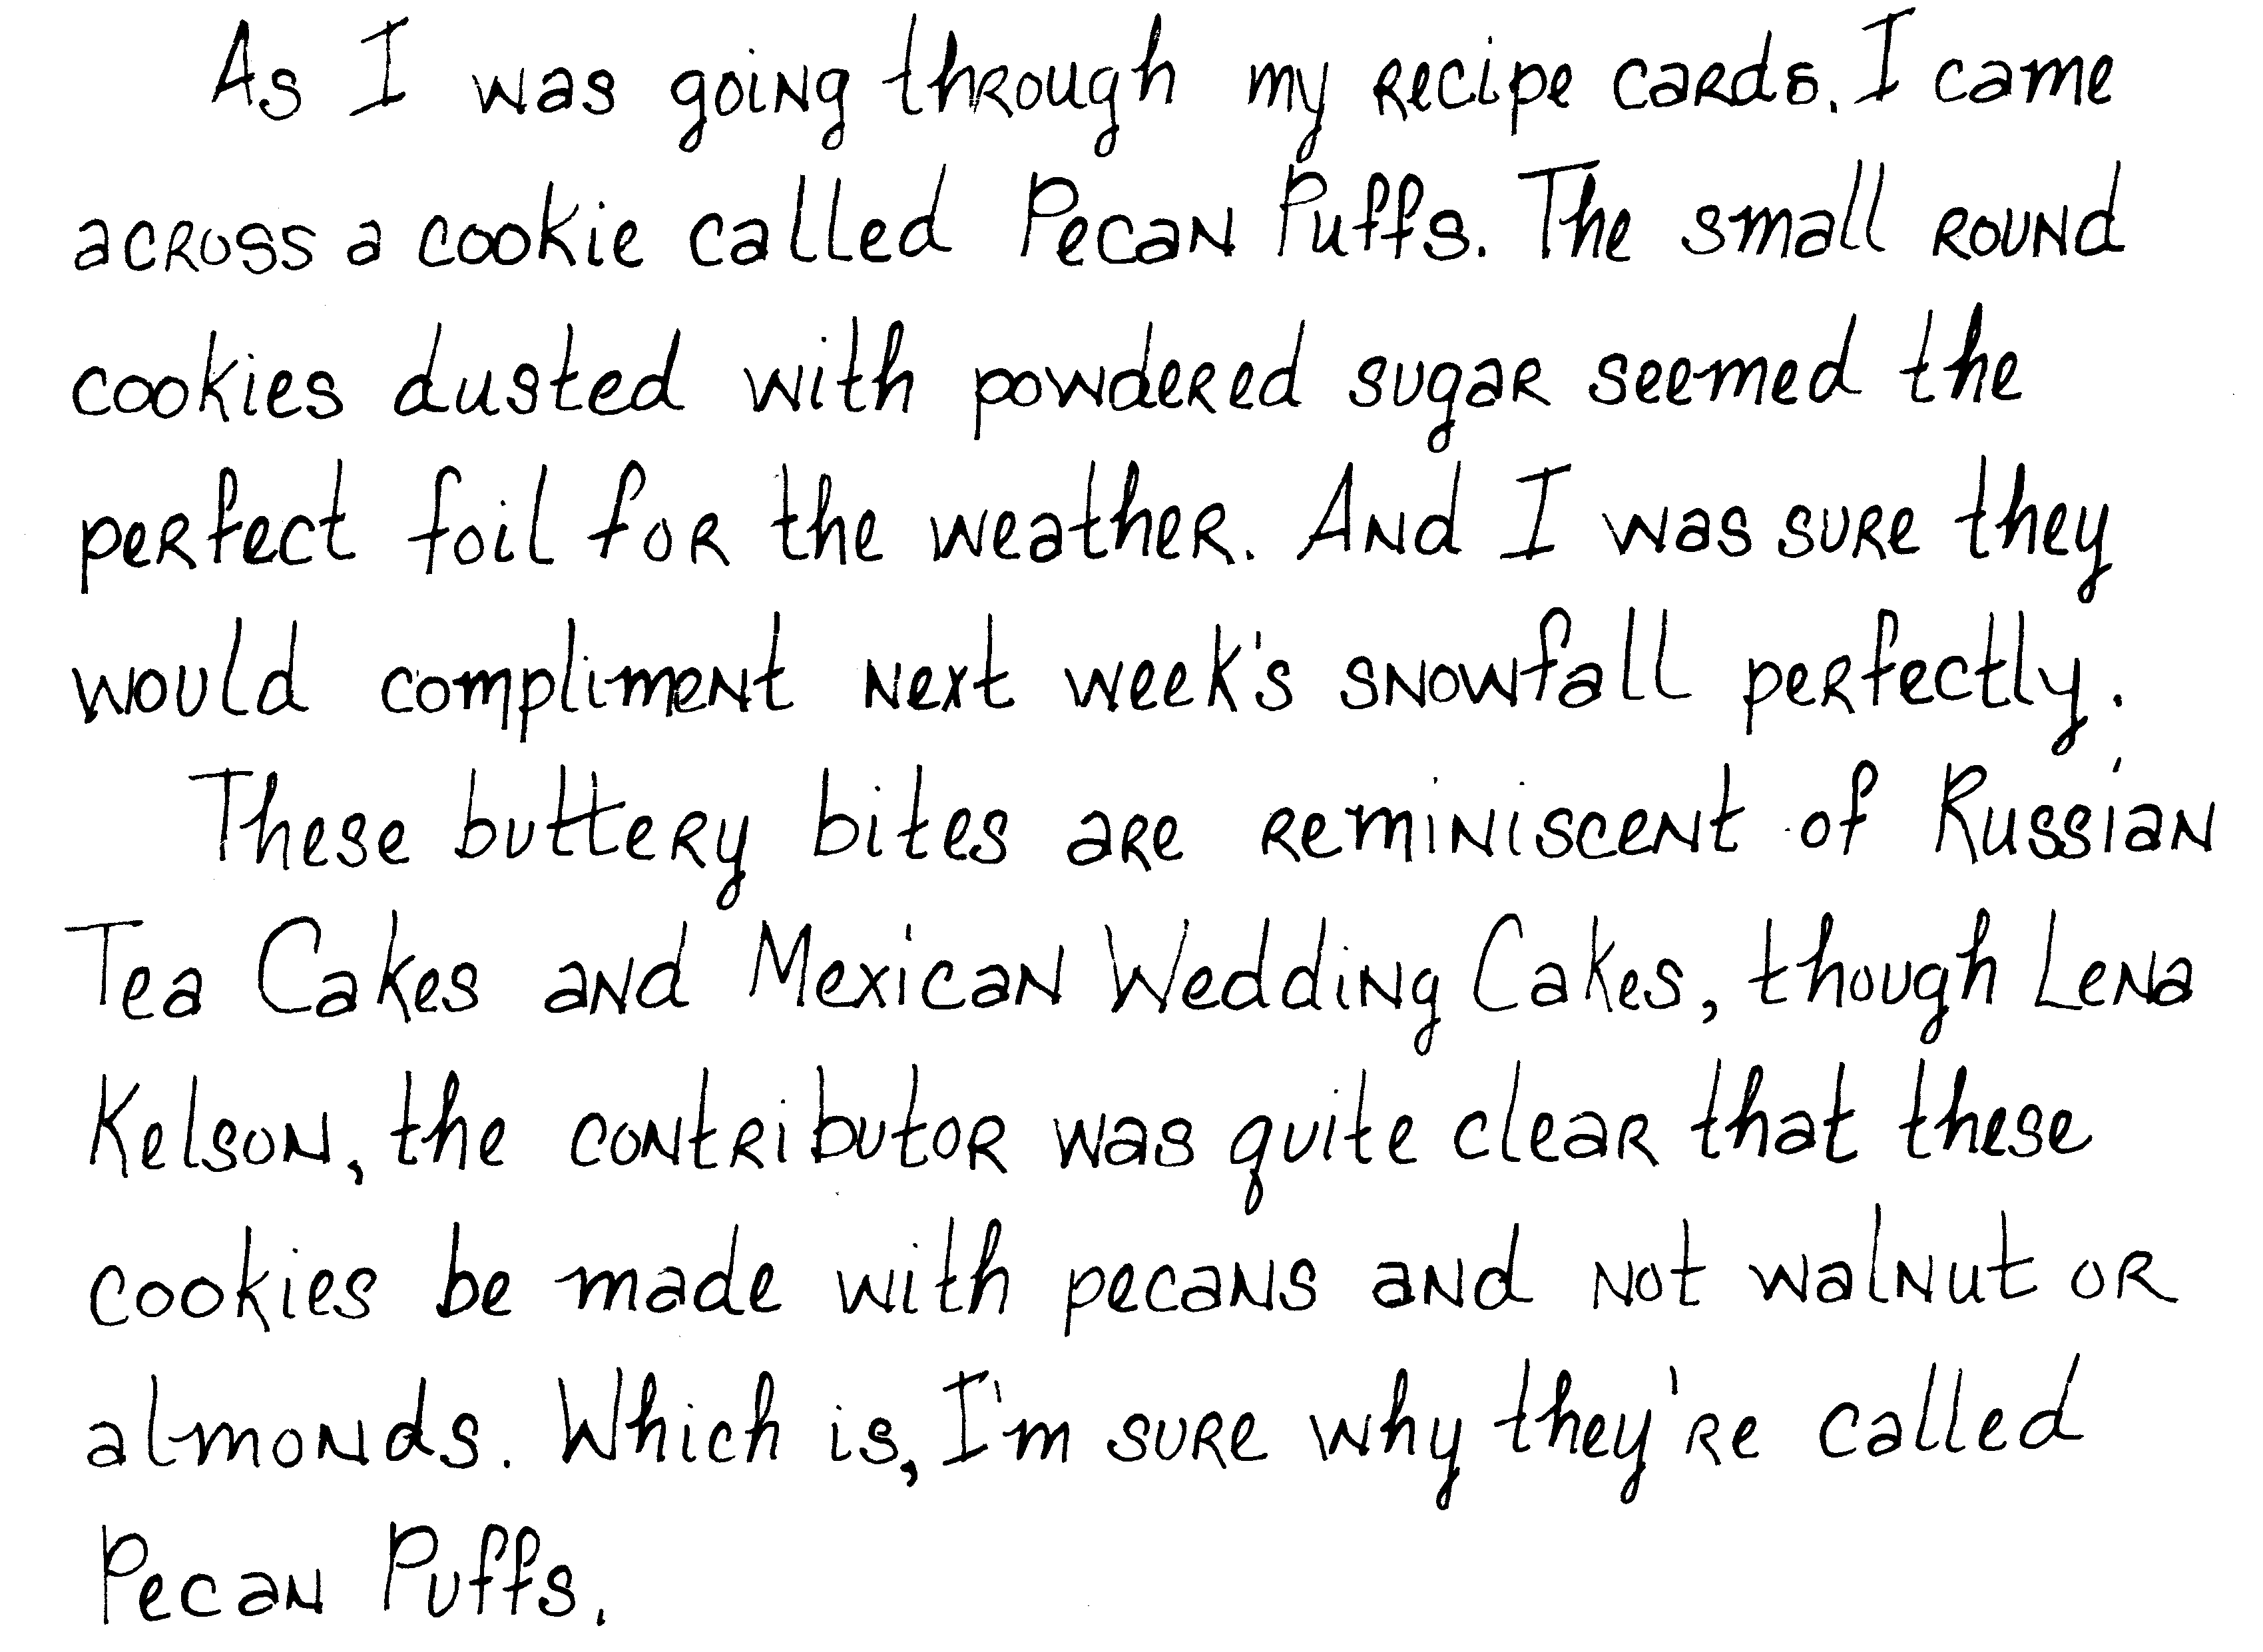 As I was going through my recipe cards. I came
across a cookie called Pecan Puffs. The small round
cookies dusted with powdered sugar seemed the
perfect foil for the weather. And I was sure they
would compliment next week's snowfall perfectly.
These buttery bites are reminiscent of Russian
Tea Cakes and Mexican Wedding Cakes, though Lena
Kelson, the contributor was quite clear that these
cookies be made with pecans and not walnut or
almonds. Which is, I'm sure why they're called
Pecan Puffs.